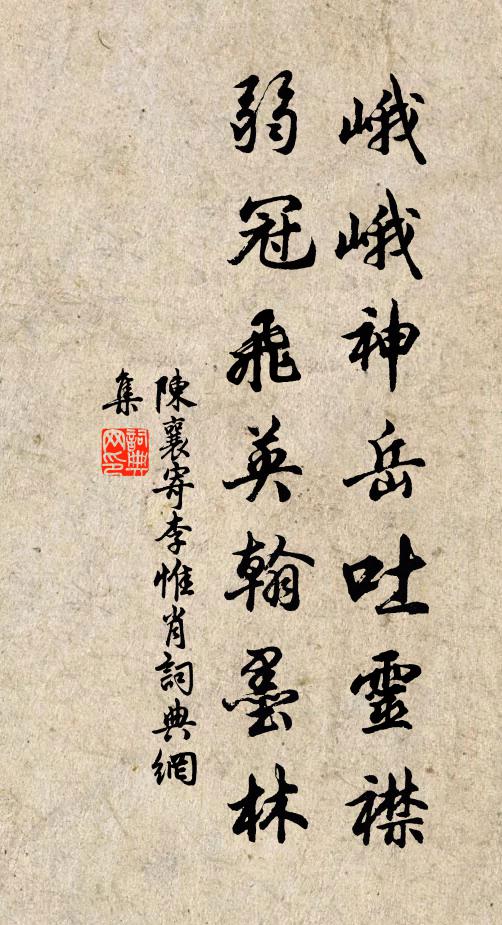 峨峨神岳吐靈襟
弱冠飛英翰墨林
陳襄寄李惟肖詞典網
集
詞典网印